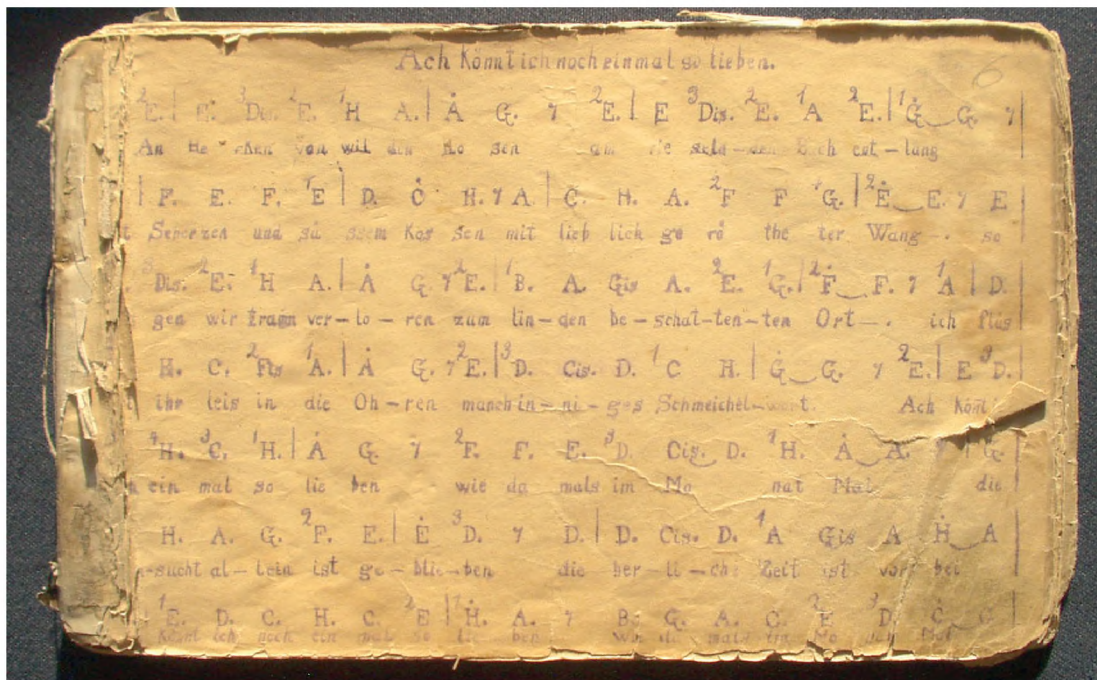 Ach Könnt ich noch einmal so lieben. 6
²E. | E. ³Dis. ²E. ¹H A. | Ȧ G. 7 ²E. | E ³Dis. ²E. ¹A ²E. | ¹Ġ‿G. 7 |
An He chen von wil den Ro sen am
| F. E. F. ¹E | D. Ċ H. 7 A | C. H. A. ²F F ¹G. | ²Ė‿E. 7 E
Scherzen und sü ssem Kos sen mit lieb lich ge rö the ter Wang. so
³Dis. ²E. ¹H A. | Ȧ G. 7 ²E. | ¹B. A. Gis A. ²E. ¹G. | ²Ḟ‿F. 7 ¹A | D.
gen wir traum ver–lo–ren zum lin–den be–schat–ten–ten Ort–. ich flüs
H. C. ²Fis ¹A. | Ȧ G. 7 ²E. | ³D. Cis. D. ¹C H. | Ġ‿G. 7 ²E. | E ³D.
ihr leis in die Oh–ren manch in–ni–ges Schmeichel–wort. Ach Könt
⁴H. ³C. ¹H. | Ȧ G. 7 ²F. F. E. ³D. Cis.‿D. ¹H. Ȧ‿A. 7 | G.
ein mal so lie ben wie da mals im Mo nat Mai die
H. A. G. ²F. E. | Ė ³D. 7 D. | D. Cis. D. ¹A Gis A Ḣ‿A
-sucht al–lein ist ge–blie–ben die her–li–che Zeit ist vor bei
¹E. D. C. H. C. ²E | ¹Ḣ. A. 7 B. G. A. C. ²E ³D. Ċ‿G
Könt ich noch ein mal so lie ben wie da mals im Mo nat Mai